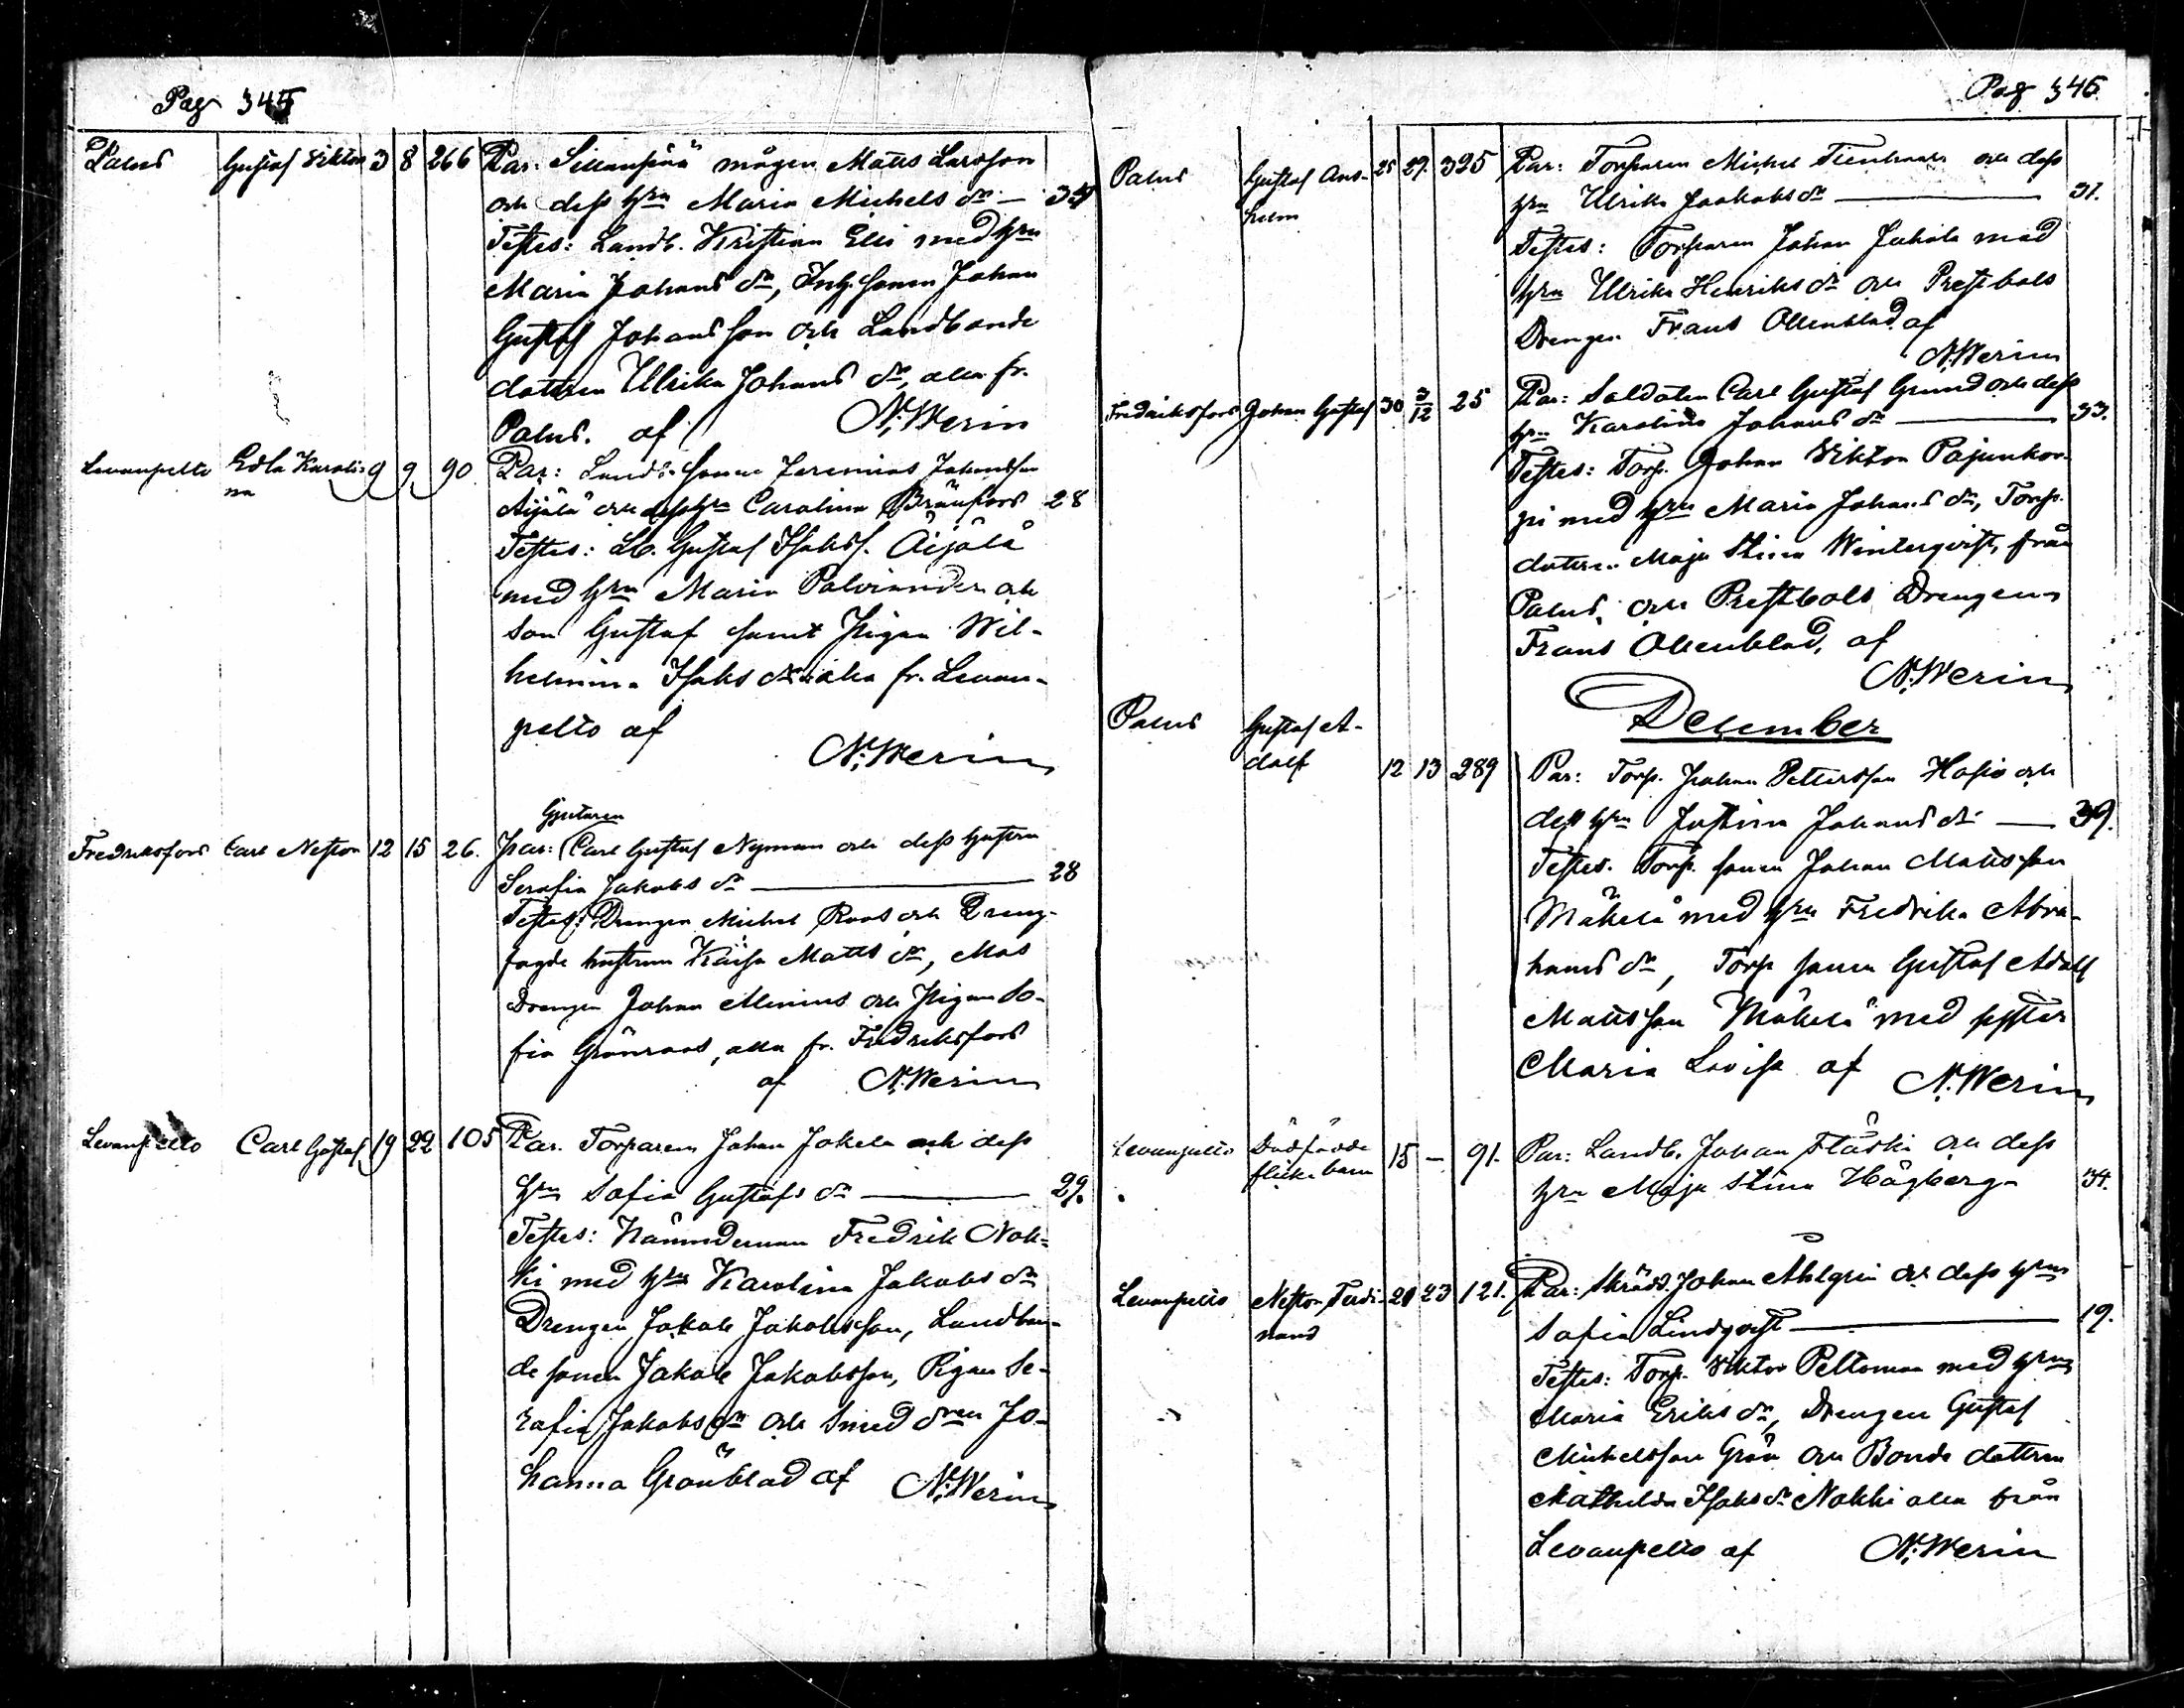 Pag 345
Palus Gustaf Viktor 3 8 266 Par: Sillanpää mågen Matts Larsson
och dess hru Maria Michels dr — 34
Testes: Landb. Kristian Elli med hru
Maria Johans dr, Inh. sonen Johan
Gustaf Johansson och Landbonde
dottren Ulrika Johans dr, alla fr.
Palus. af N. Werin
Levanpelto Edla Karoli- 9 9 90 Par: Landb. sonen Jeremias Johansson
na
Äijälä och dess hru Carolina Bränfors 28
Testes: Lb. Gustaf Isakss. Äijälä
med hru Maria Palviander och
son Gustaf samt Pigan Wil-
helmina Isaks dr alla fr. Levan-
pelto af
N. Werin
Gjutaren
Fredriksfors Carl Nestor 12 15 26. Par: Carl Gustaf Nyman och dess hustru
Serafia Jakobs dr — 28
Testes: Drengen Michel Roos och Dreng-
fogde hustrun Kaisa Matts dr, Mas
Drengen Johan Alenius och Pigan So-
fia Grönroos, alla fr. Fredriksfors
af N. Werin
Levanpelto Carl Gustaf 19 22 105 Par. Torparen Johan Jokela och dess
hru Sofia Gustafs dr — 29.
Testes: Nämndeman Fredrik Nok-
ki med hru Karolina Jakobs dr
Drengen Jakob Jakobsson, Landbon-
de sonen Jakob Jakobsson, Pigan Se-
rafia Jakobs dr och Smed dren Jo-
hanna Grönblad af N. Werin
Pag 346
Palus Gustaf Ans- 25 27. 325 Par: Torparen Michel Tienhaara och dess
helm
hru Ulrika Jaakobs dr — 31.
Testes: Torparen Johan Juhola med
hru Ulrika Henriks dr och Prestbols
Drengen Frans Ollenblad af
N. Werin
Fredriksfors Johan Gustaf 30 3/12 25 Par: Soldaten Carl Gustaf Grund och dess
hru Karolina Johans dr — 33.
Testes: Torp. Johan Viktor Pajunkor-
pi med hru Maria Johans dr, Torp.
dottren Maja Stina Winterqvist, från
Palus, och Prestbols Drengen
Frans Ollenblad, af
N. Werin
December
Palus Gustaf A-
dolf 12 13 289 Par: Torp. Johan Pettersson Hosio och
dess hru Justina Johans dr — 39.
Testes. Torp. sonen Johan Mattsson
Mäkelä med hru Fredrika Abra-
hams dr, Torp sonen Gustaf Adolf
Mattsson Mäkelä med syster
Maria Lovisa af N. Werin
Levanpelto Dödfödde 15 — 91. Par: Landb. Johan Fläski och dess
flicke barn
hru Maja Stina Högberg 34.
Levanpelto Nestor Ferdi- 20 23 121. Par: Skrädd. Johan Ahlgren och dess hru
nand
Sofia Lindqvist — 19.
Testes: Torp. Viktor Peltomaa med hru
Maria Eriks dr, Drengen Gustaf
Michelsson Grön och Bonde dottren
Mathilda Isaks dr Nokki alla från
Levanpelto af N. Werin